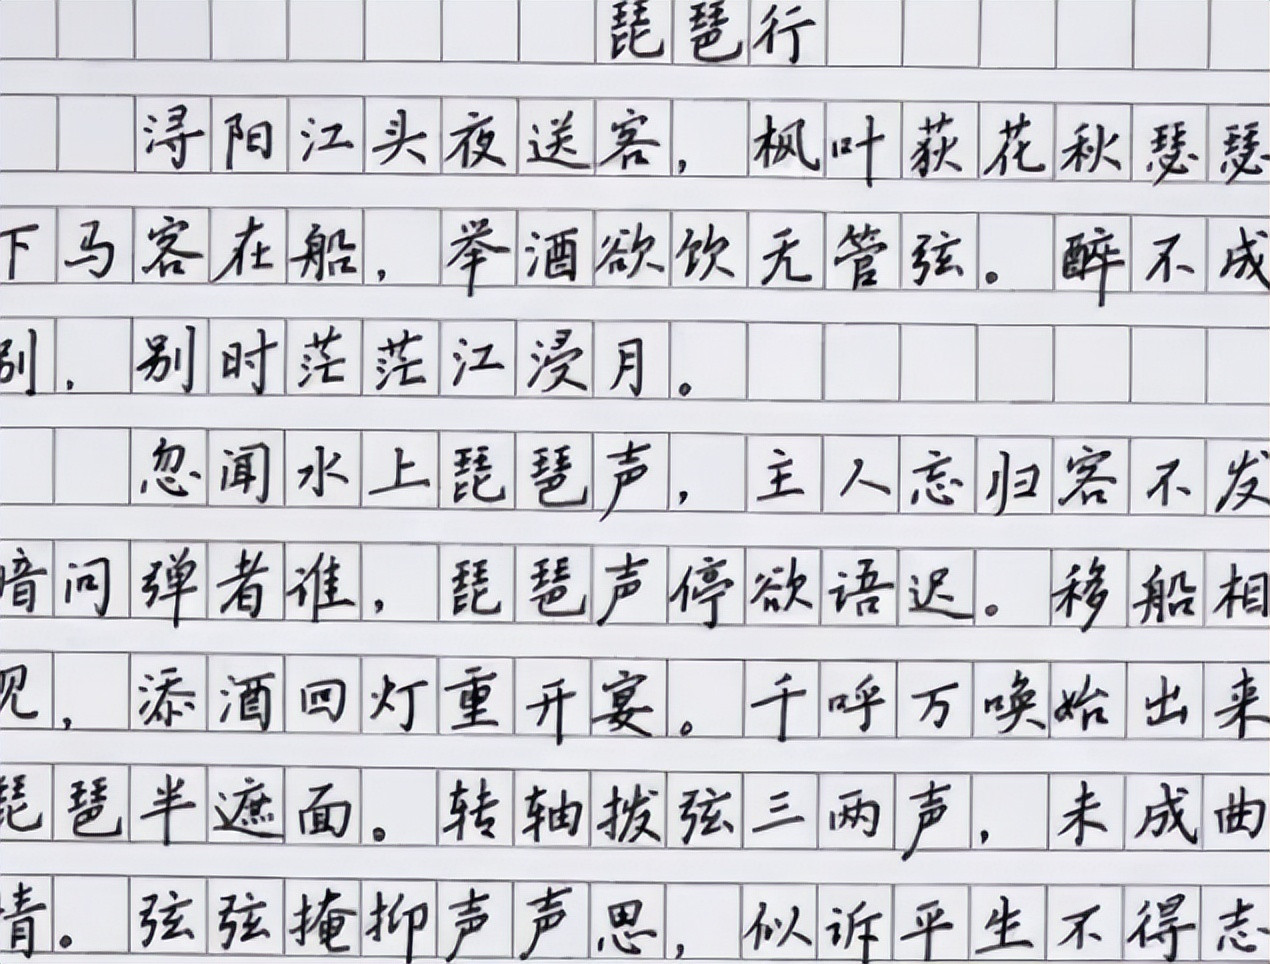 琵琶行
浔阳江头夜送客，枫叶荻花秋瑟瑟
下马客在船，举酒欲饮无管弦。醉不成
别，别时茫茫江浸月。
忽闻水上琵琶声，主人忘归客不发
暗问弹者谁，琵琶声停欲语迟。移船相
见，添酒回灯重开宴。千呼万唤始出来
琵琶半遮面。转轴拨弦三两声，未成曲
情。弦弦掩抑声声思，似诉平生不得志